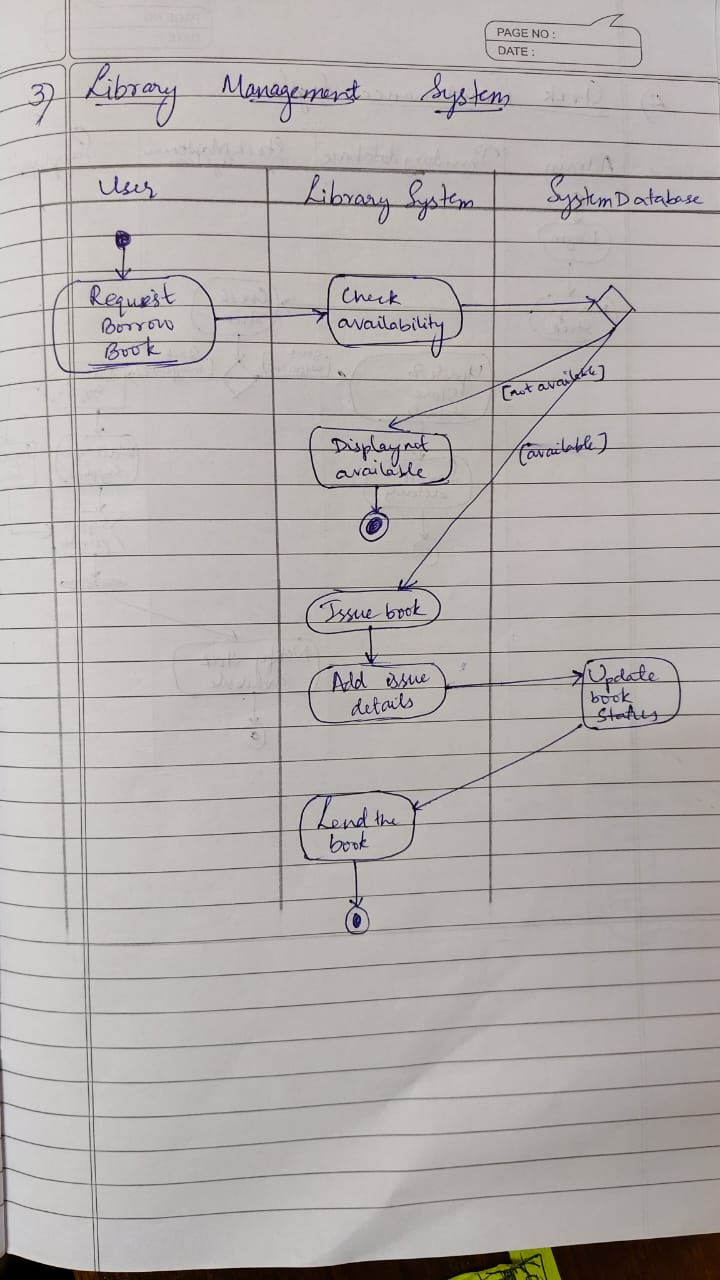 PAGE NO :
DATE :
3) Library Management System
User
Library System
System Database
Request
Borrow
Book
Check
availability
[not available]
Display not
available
[available]
Issue book
Add issue
details
Update
book
Status
Lend the
book